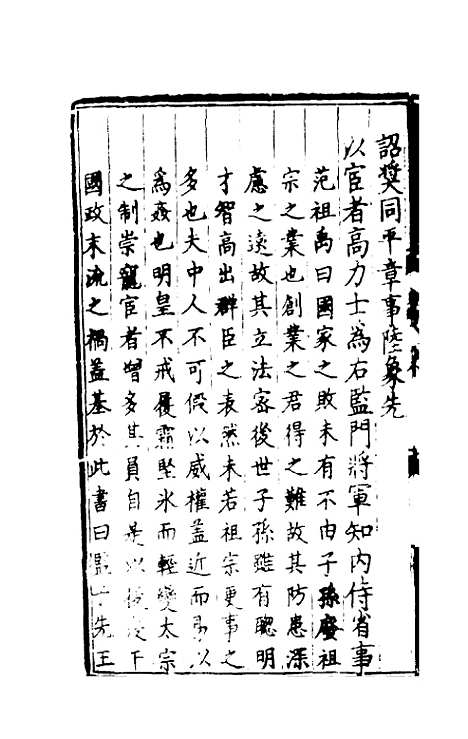 詔奬同平章事陸象先
以宦者高力士為右監門將軍知內侍省事
范祖禹曰國家之敗未有不由子孫廢祖
宗之業也創業之君得之難故其防患深
慮之遠故其立法密後世子孫雖有聰明
才智高出群臣之表然未若祖宗更事之
多也夫中人不可假以威權蓋近而易以
為姦也明皇不戒履霜堅氷而輕變太宗
之制崇寵宦者增多其員自是以後浸干
國政末流之禍蓋基於此書曰監于先王